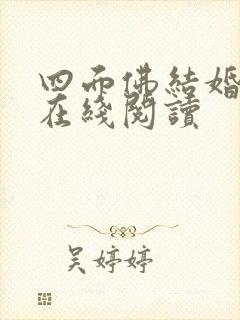 四面佛結婚
在綫閱讀
吴婷婷